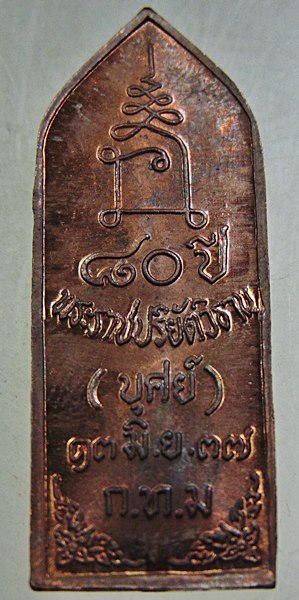 ๘๐ ปี
พระราชปริยัติวิธาน
(บุศย์)
๑๓ มิ.ย. ๓๗
ก.ท.ม